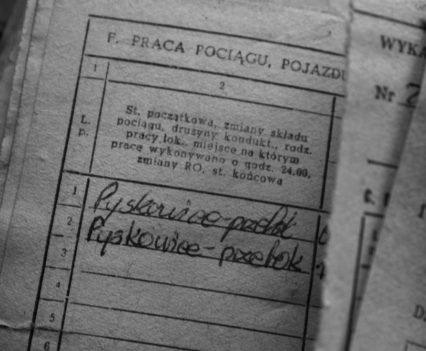 F. PRACA POCIĄGU, POJAZDU
1 2
L. p.
St. początkowa, zmiany składu
pociągu, drużyny kondukt., rodz.
pracy lok., miejsce na którym
pracę wykonywano o godz. 24.00,
zmiany RO, st. końcowa
1 Pyskowice-przebok
2 Pyskowice-przebok
3
4
5
6
WYKA
Nr 2